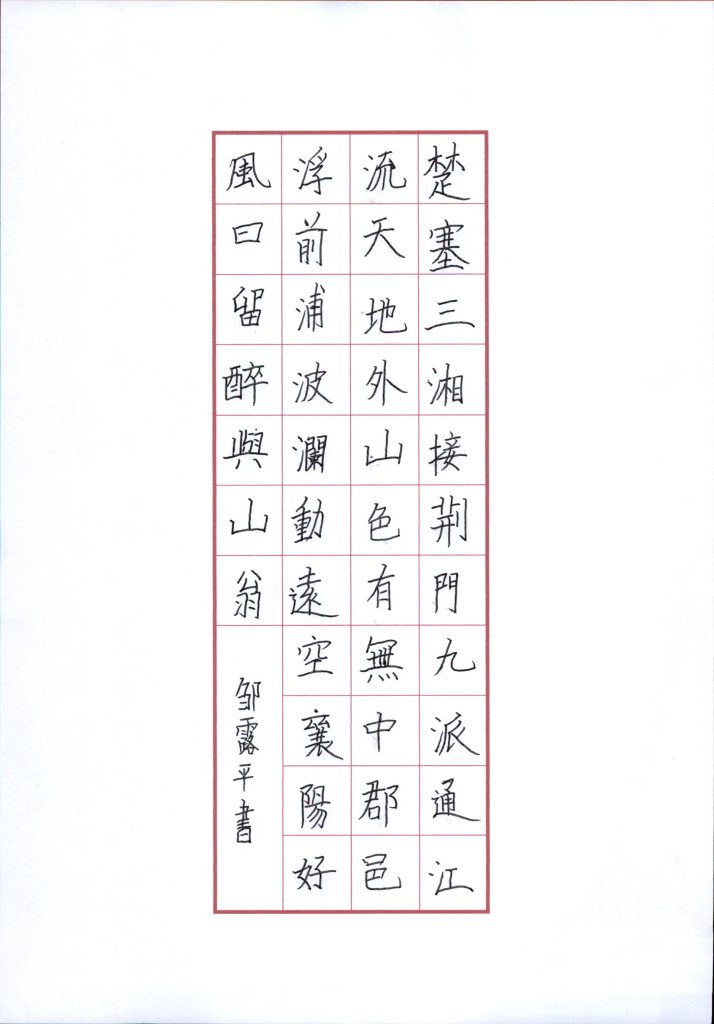 楚塞三湘接荆門九派通江
流天地外山色有無中郡邑
浮前浦波瀾動遠空襄陽好
風日留醉與山翁
邹露平書